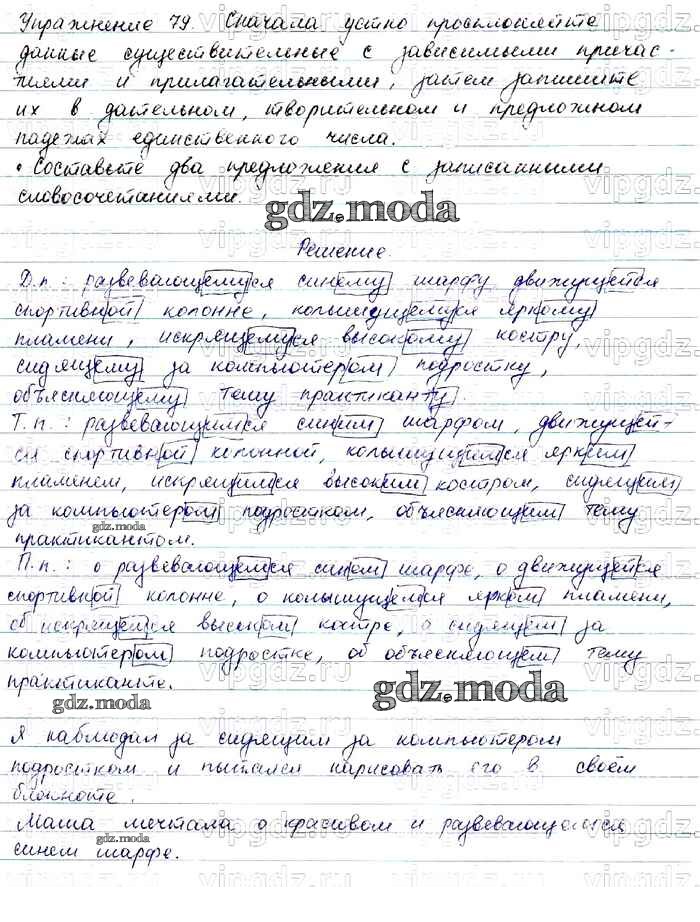 Упражнение 79. Сначала устно просклоняйте
данные существительные с зависимыми причас-
тиями и прилагательными, затем запишите
их в дательном, творительном и предложном
падежах единственного числа.
• Составьте два предложения с записанными
словосочетаниями.
gdz.moda
Решение.
Д.п.: развевающемуся синему шарфу движущейся
спортивной колонне, колышущемуся яркому
пламени, искрящемуся высокому костру,
сидящему за компьютером подростку,
объясняющему тему практиканту.
Т.п.: развевающимся синим шарфом, движущей-
ся спортивной колонной, колышущимся ярким
пламенем, искрящимся высоким костром, сидящим
за компьютером подростком, объясняющим тему
gdz.moda
практикантом.
П.п.: о развевающемся синем шарфе, о движущейся
спортивной колонне, о колышущемся ярком пламени,
об искрящемся высоком костре, о сидящем за
компьютером подростке, об объясняющем тему
практиканте.
gdz.moda
gdz.moda
Я наблюдал за сидящим за компьютером
подростком и пытался нарисовать его в своём
блокноте.
Маша мечтала о красивом и развевающемся
синем шарфе.
gdz.moda